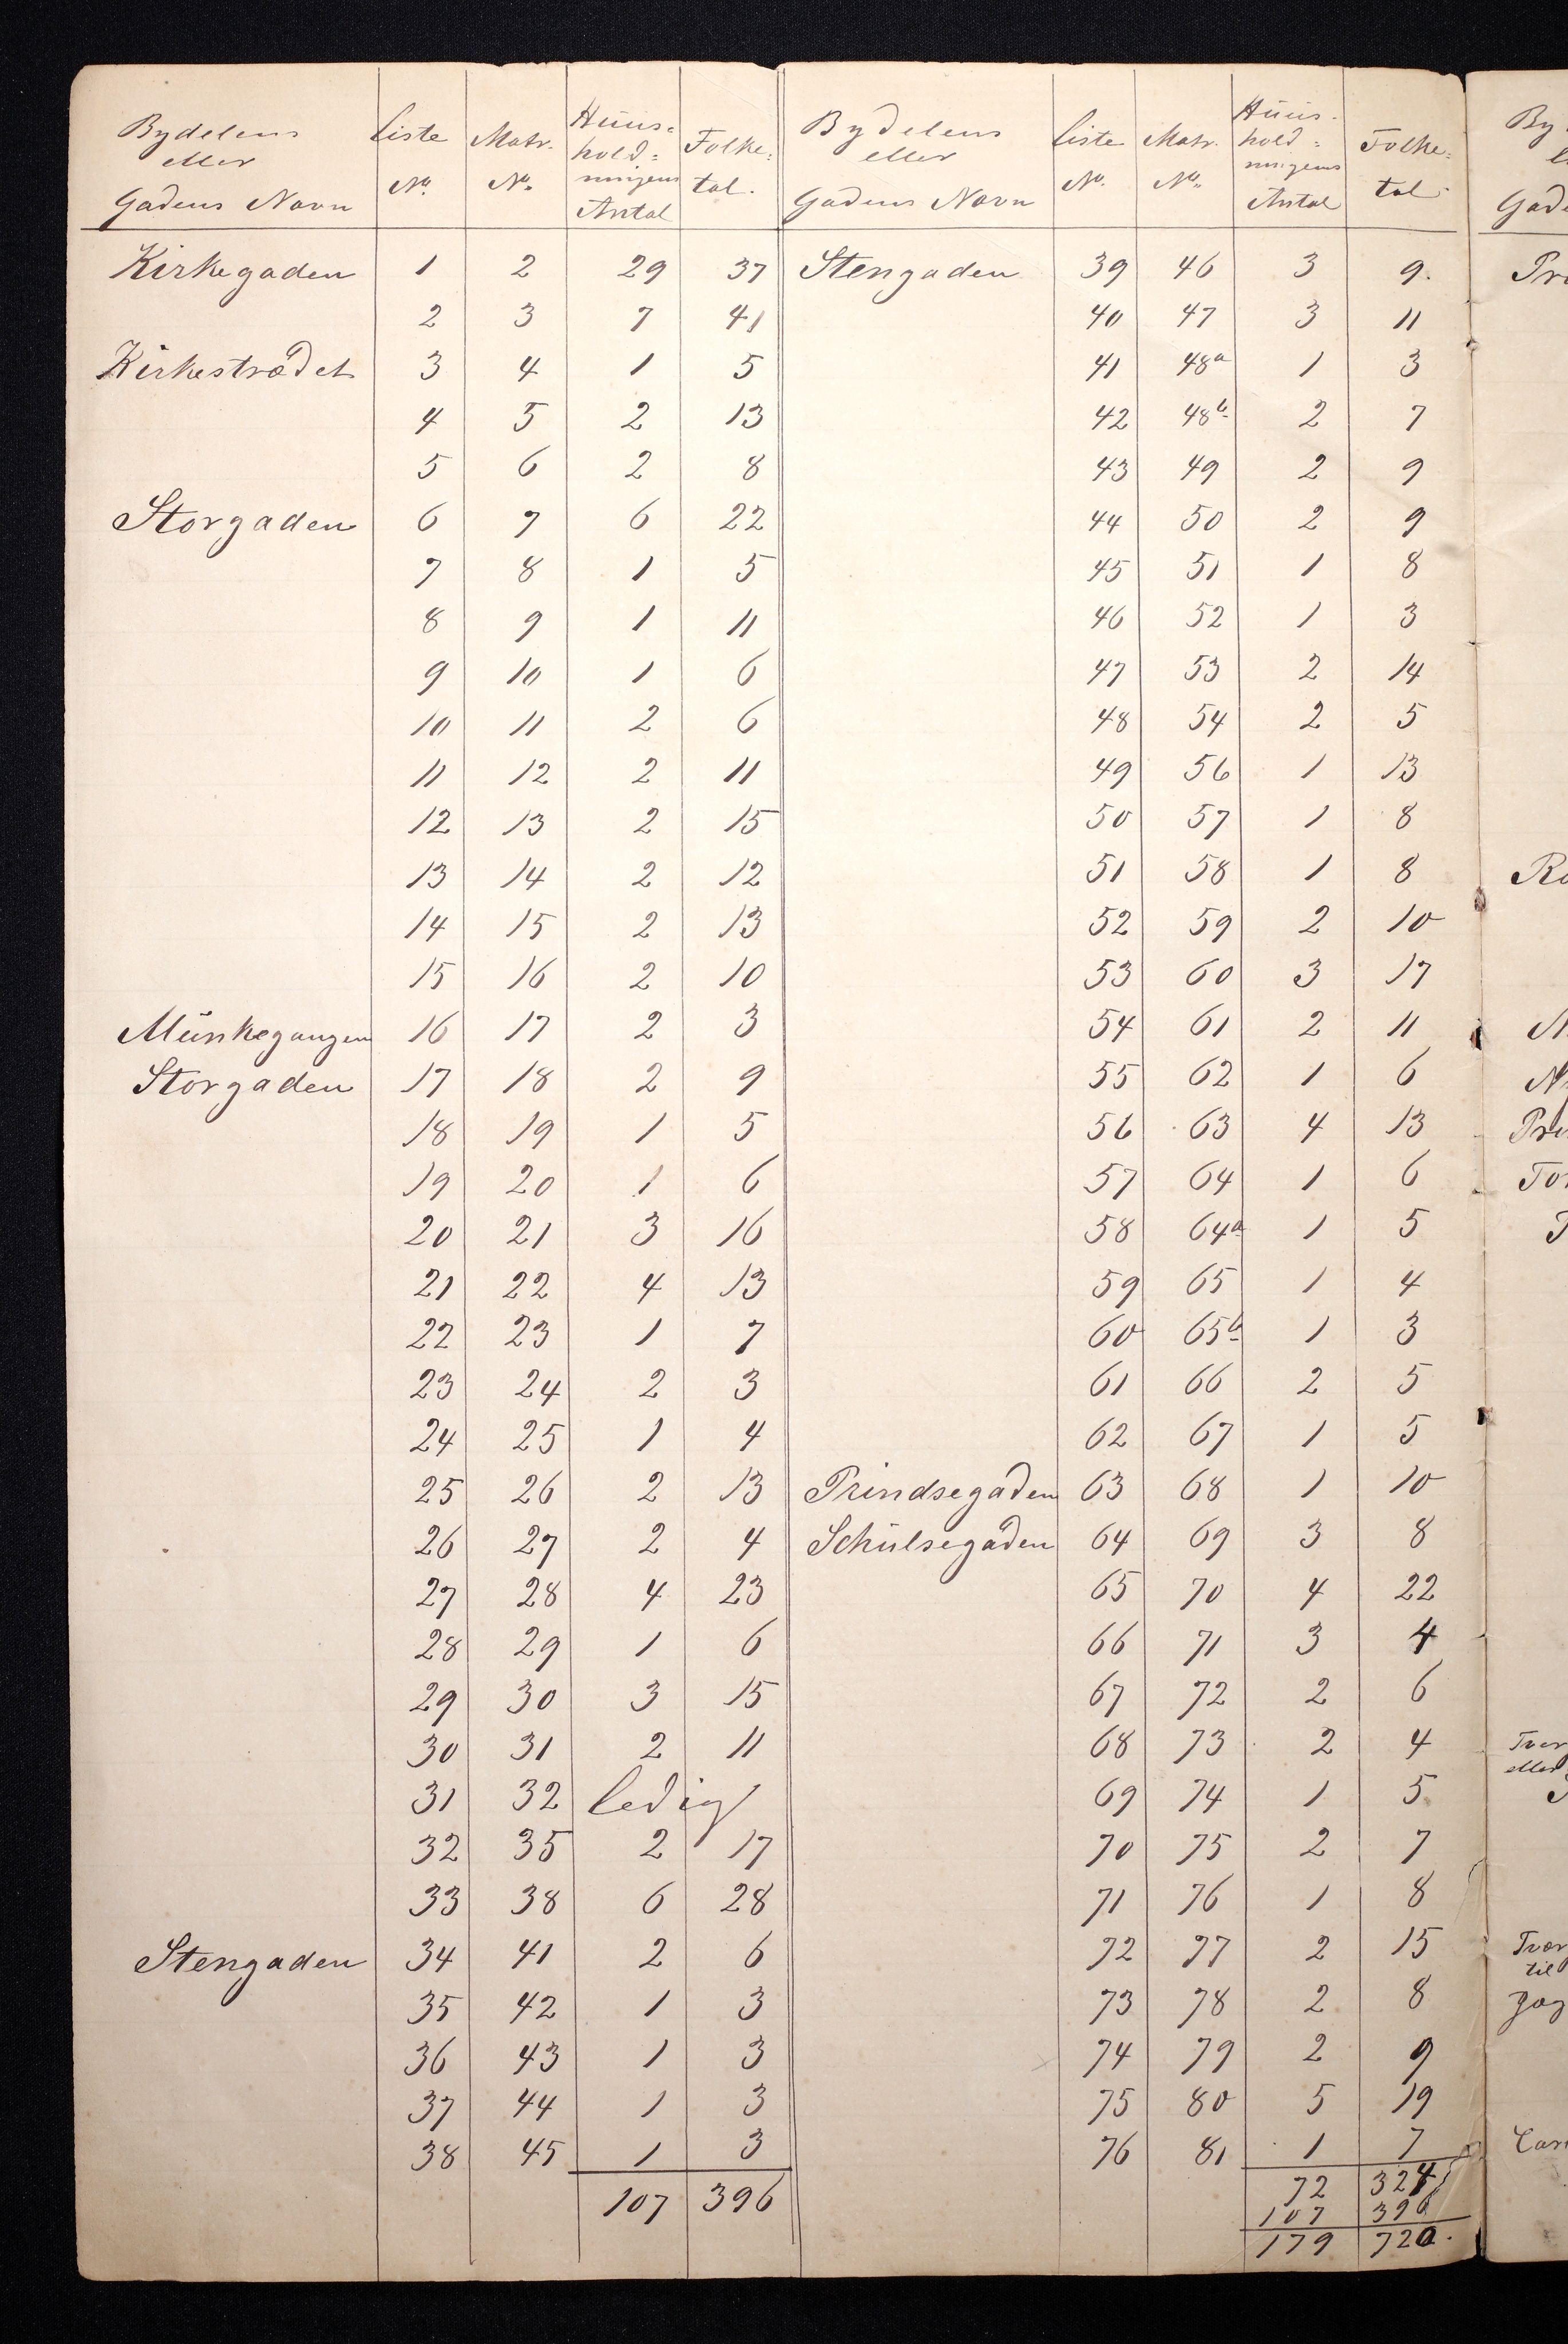 Bydelens eller Gadens Navn | Liste No. | Matr. No. | Huus-hold-ningens Antal | Folke-tal. | Bydelens eller Gadens Navn | Liste No. | Matr. No. | Huus-hold-ningens Antal | Folke-tal
Kirkegaden | 1 | 2 | 29 | 37 | Stengaden | 39 | 46 | 3 | 9.
2 | 3 | 7 | 41 | 40 | 47 | 3 | 11
Kirkestrædet | 3 | 4 | 1 | 5 | 41 | 48a | 1 | 3
4 | 5 | 2 | 13 | 42 | 48b | 2 | 7
5 | 6 | 2 | 8 | 43 | 49 | 2 | 9
Storgaden | 6 | 7 | 6 | 22 | 44 | 50 | 2 | 9
7 | 8 | 1 | 5 | 45 | 51 | 1 | 8
8 | 9 | 1 | 11 | 46 | 52 | 1 | 3
9 | 10 | 1 | 6 | 47 | 53 | 2 | 14
10 | 11 | 2 | 6 | 48 | 54 | 2 | 5
11 | 12 | 2 | 11 | 49 | 56 | 1 | 13
12 | 13 | 2 | 15 | 50 | 57 | 1 | 8
13 | 14 | 2 | 12 | 51 | 58 | 1 | 8
14 | 15 | 2 | 13 | 52 | 59 | 2 | 10
15 | 16 | 2 | 10 | 53 | 60 | 3 | 17
Munkegangen | 16 | 17 | 2 | 3 | 54 | 61 | 2 | 11
Storgaden | 17 | 18 | 2 | 9 | 55 | 62 | 1 | 6
18 | 19 | 1 | 5 | 56 | 63 | 4 | 13
19 | 20 | 1 | 6 | 57 | 64 | 1 | 6
20 | 21 | 3 | 16 | 58 | 64a | 1 | 5
21 | 22 | 4 | 13 | 59 | 65 | 1 | 4
22 | 23 | 1 | 7 | 60 | 65b | 1 | 3
23 | 24 | 2 | 3 | 61 | 66 | 2 | 5
24 | 25 | 1 | 4 | 62 | 67 | 1 | 5
25 | 26 | 2 | 13 | Prindsegaden | 63 | 68 | 1 | 10
26 | 27 | 2 | 4 | Schulsegaden | 64 | 69 | 3 | 8
27 | 28 | 4 | 23 | 65 | 70 | 4 | 22
28 | 29 | 1 | 6 | 66 | 71 | 3 | 4
29 | 30 | 3 | 15 | 67 | 72 | 2 | 6
30 | 31 | 2 | 11 | 68 | 73 | 2 | 4
31 | 32 | ledig | 69 | 74 | 1 | 5
32 | 35 | 2 | 17 | 70 | 75 | 2 | 7
33 | 38 | 6 | 28 | 71 | 76 | 1 | 8
Stengaden | 34 | 41 | 2 | 6 | 72 | 77 | 2 | 15
35 | 42 | 1 | 3 | 73 | 78 | 2 | 8
36 | 43 | 1 | 3 | 74 | 79 | 2 | 9
37 | 44 | 1 | 3 | 75 | 80 | 5 | 19
38 | 45 | 1 | 3 | 76 | 81 | 1 | 7
107 | 396 | 72 | 324
107 | 396
179 | 720.